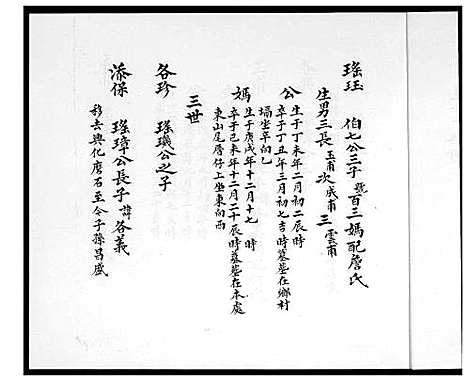 瑤珏 伯七公三子號百三媽配詹氏
生男三長玉甫次成甫三雲甫
公生于丁未年二月初二辰時
卒于丁丑年三月初七吉時墓葬在鄉村
塥坐辛向乙
媽生于庚戌年十二月十七 時
卒于己未年十二月二十辰時墓葬在本處
東山尾厝仔上坐東向西
三世
各珍 瑤璣公之子
添保 瑤璋公長子諱各義
移去興化磨石至今子孫昌盛